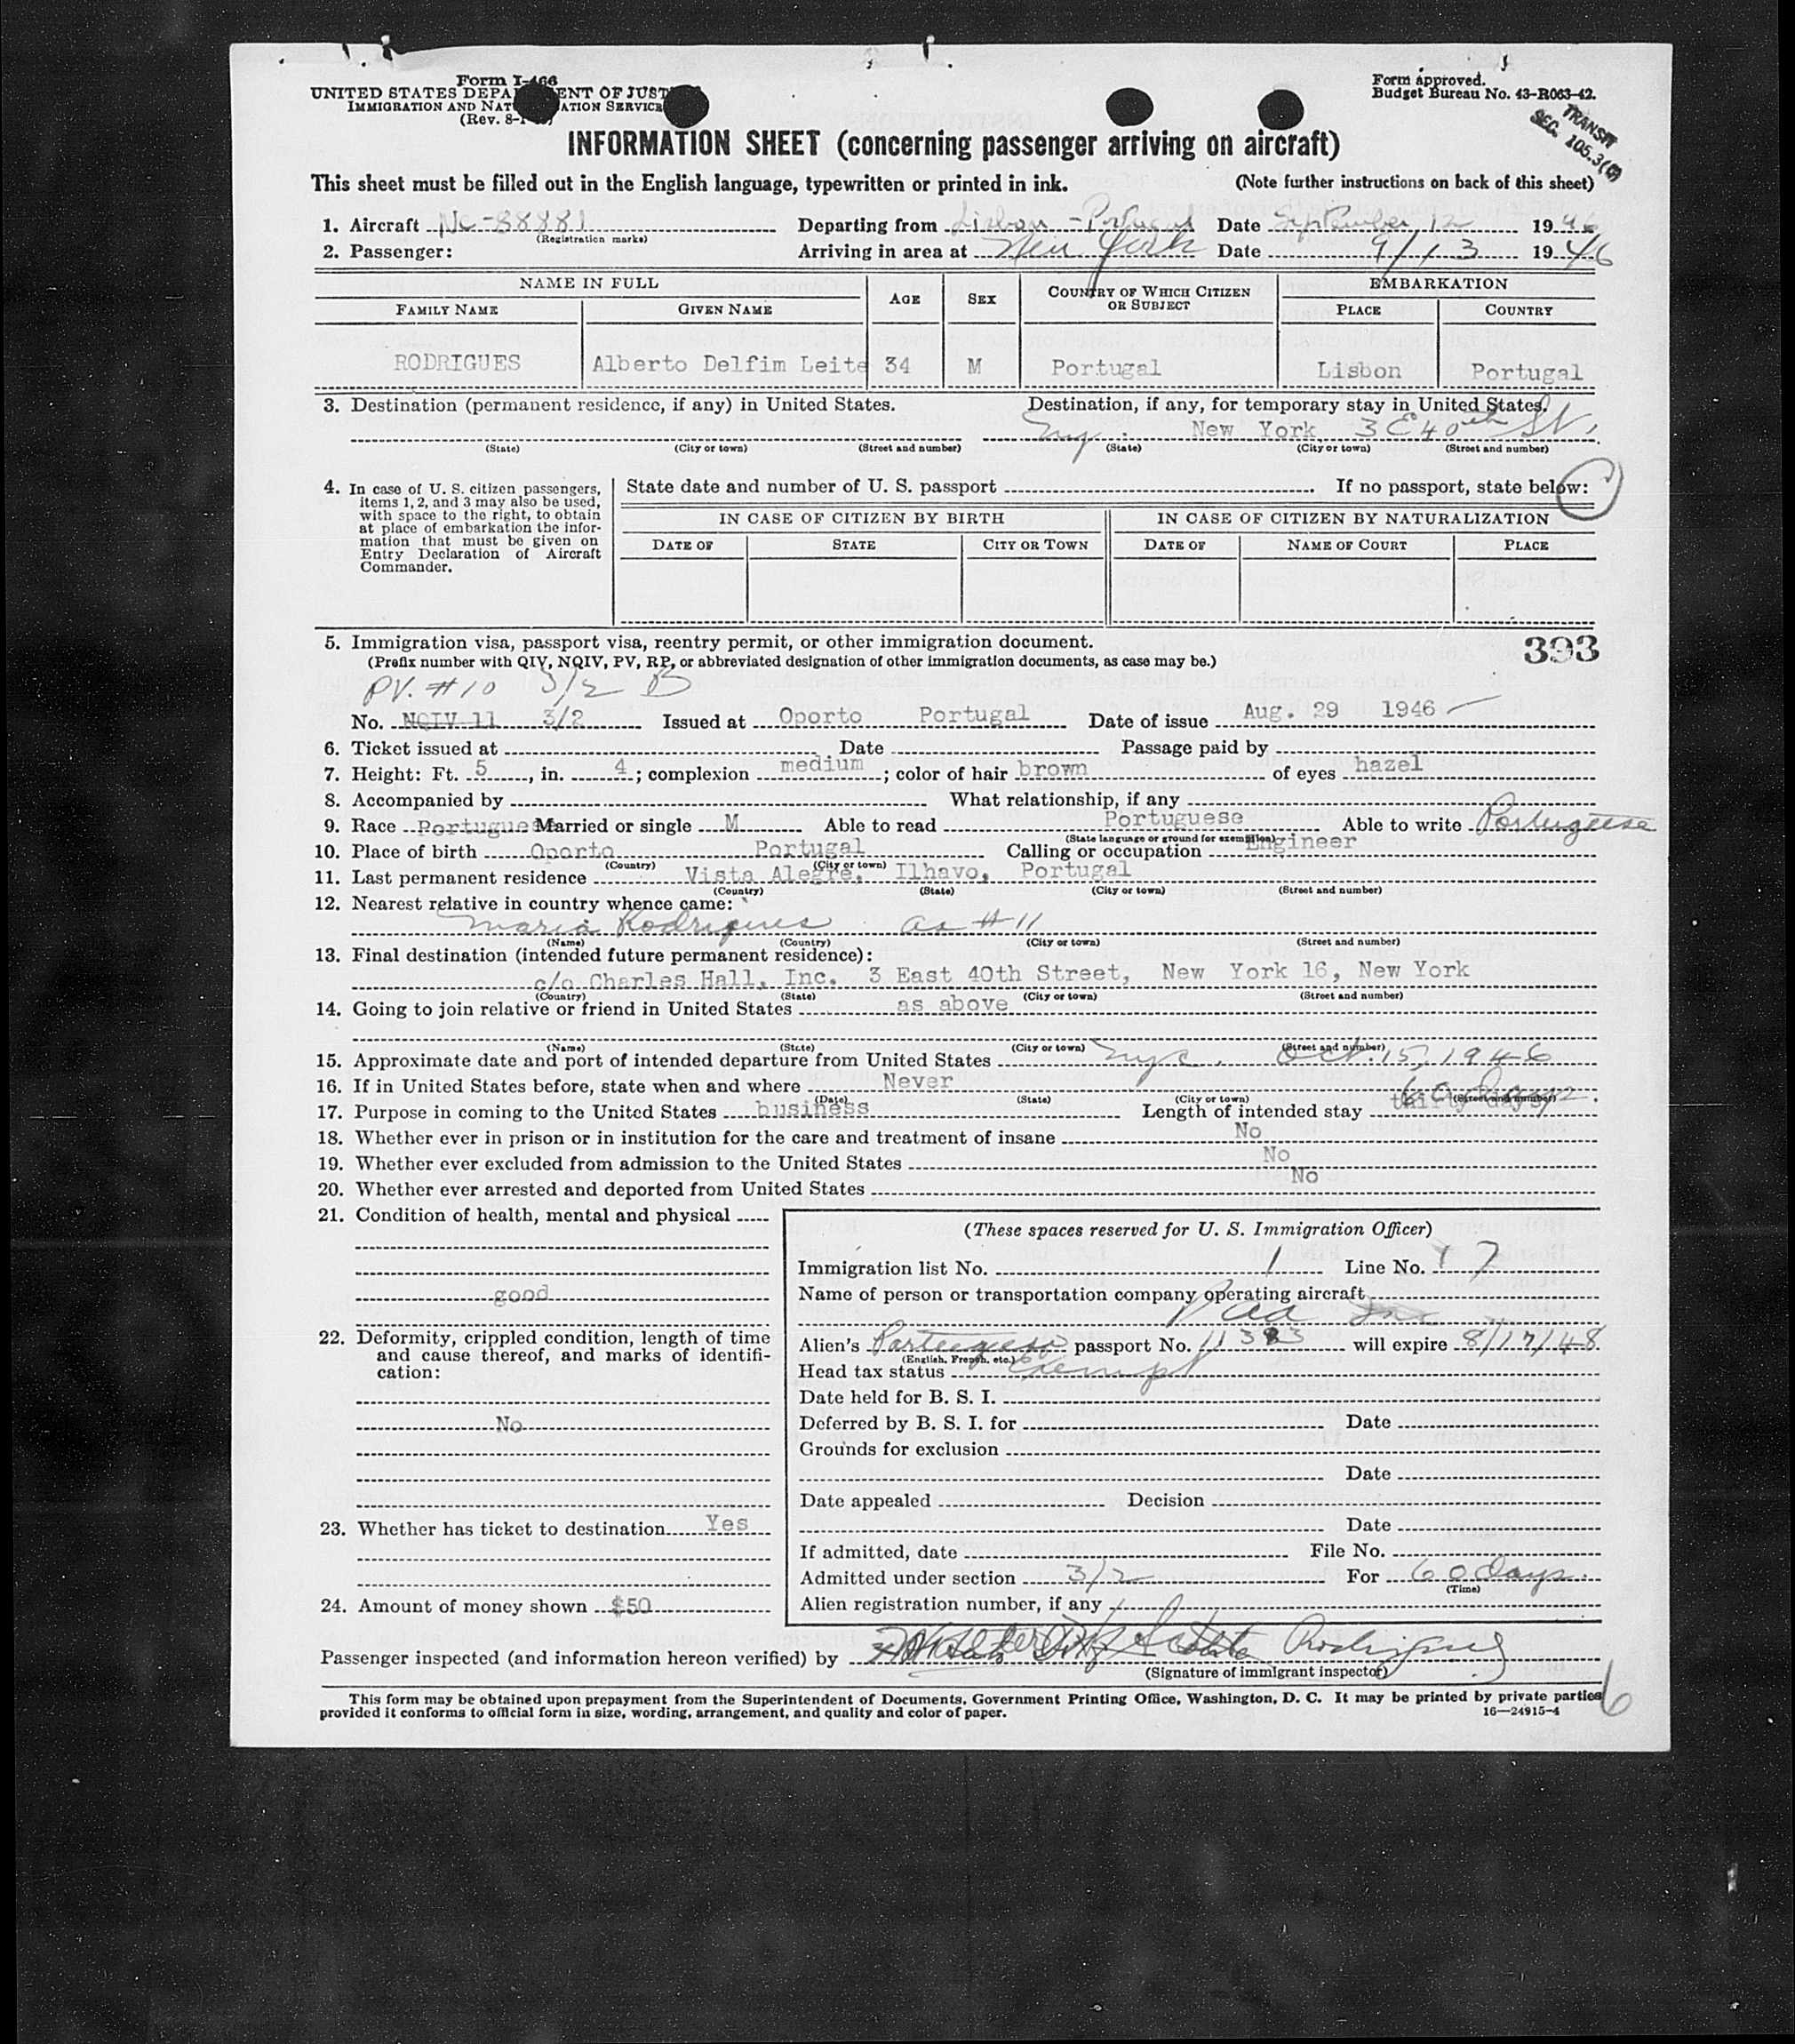 Form I-466
UNITED STATES DEPA ENT OF JUST
IMMIGRATION AND NAT ATION SERVICE
(Rev. 8-1
Form approved.
Budget Bureau No. 43-R063-42.
TRANSIT
SEC. 105.3(C)
INFORMATION SHEET (concerning passenger arriving on aircraft)
This sheet must be filled out in the English language, typewritten or printed in ink. (Note further instructions on back of this sheet)
1. Aircraft Nc-88881 Departing from Lisbon - Portugal Date September 12 1946
(Registration marks)
2. Passenger: Arriving in area at New York Date 9/13 1946
NAME IN FULL AGE SEX COUNTRY OF WHICH CITIZEN OR SUBJECT EMBARKATION
FAMILY NAME GIVEN NAME PLACE COUNTRY
RODRIGUES Alberto Delfim Leite 34 M Portugal Lisbon Portugal
3. Destination (permanent residence, if any) in United States. Destination, if any, for temporary stay in United States.
Ny. New York 3 E 40th St.
(State) (City or town) (Street and number) (State) (City or town) (Street and number)
4. In case of U. S. citizen passengers, items 1, 2, and 3 may also be used, with space to the right, to obtain at place of embarkation the information that must be given on Entry Declaration of Aircraft Commander.
State date and number of U. S. passport If no passport, state below:
IN CASE OF CITIZEN BY BIRTH IN CASE OF CITIZEN BY NATURALIZATION
DATE OF STATE CITY OR TOWN DATE OF NAME OF COURT PLACE
5. Immigration visa, passport visa, reentry permit, or other immigration document. 393
(Prefix number with QIV, NQIV, PV, RP, or abbreviated designation of other immigration documents, as case may be.)
PV. #10 3/2 B
No. NQIV 11 3/2 Issued at Oporto Portugal Date of issue Aug. 29 1946
6. Ticket issued at Date Passage paid by
7. Height: Ft. 5, in. 4; complexion medium; color of hair brown of eyes hazel
8. Accompanied by What relationship, if any
9. Race Portuguese Married or single M Able to read Portuguese Able to write Portuguese
(State language or ground for exemption)
10. Place of birth Oporto Portugal Calling or occupation Engineer
(Country) (City or town)
11. Last permanent residence Vista Alegre, Ilhavo, Portugal
(Country) (State) (City or town) (Street and number)
12. Nearest relative in country whence came:
Maria Rodrigues as #11
(Name) (Country) (City or town) (Street and number)
13. Final destination (intended future permanent residence):
c/o Charles Hall, Inc. 3 East 40th Street, New York 16, New York
(Country) (State) (City or town) (Street and number)
14. Going to join relative or friend in United States as above
(Name) (State) (City or town) (Street and number)
15. Approximate date and port of intended departure from United States Nyc. Oct. 15, 1946
16. If in United States before, state when and where Never
(Date) (State) (City or town) (Street and number)
17. Purpose in coming to the United States business Length of intended stay thirty days 60 days.
18. Whether ever in prison or in institution for the care and treatment of insane No
19. Whether ever excluded from admission to the United States No
20. Whether ever arrested and deported from United States No
21. Condition of health, mental and physical
good
22. Deformity, crippled condition, length of time and cause thereof, and marks of identification:
No
23. Whether has ticket to destination Yes
24. Amount of money shown $50
(These spaces reserved for U. S. Immigration Officer)
Immigration list No. 1 Line No. 7
Name of person or transportation company operating aircraft
Paa Inc
Alien's Portuguese passport No. 11383 will expire 8/17/48
(English, French, etc.)
Head tax status Exempt
Date held for B. S. I.
Deferred by B. S. I. for Date
Grounds for exclusion
Date
Date appealed Decision
Date
If admitted, date File No.
Admitted under section 3/2 For 60 days.
(Time)
Alien registration number, if any
Passenger inspected (and information hereon verified) by Rodrigues
(Signature of immigrant inspector)
6
This form may be obtained upon prepayment from the Superintendent of Documents, Government Printing Office, Washington, D. C. It may be printed by private parties
provided it conforms to official form in size, wording, arrangement, and quality and color of paper. 16—24915-4